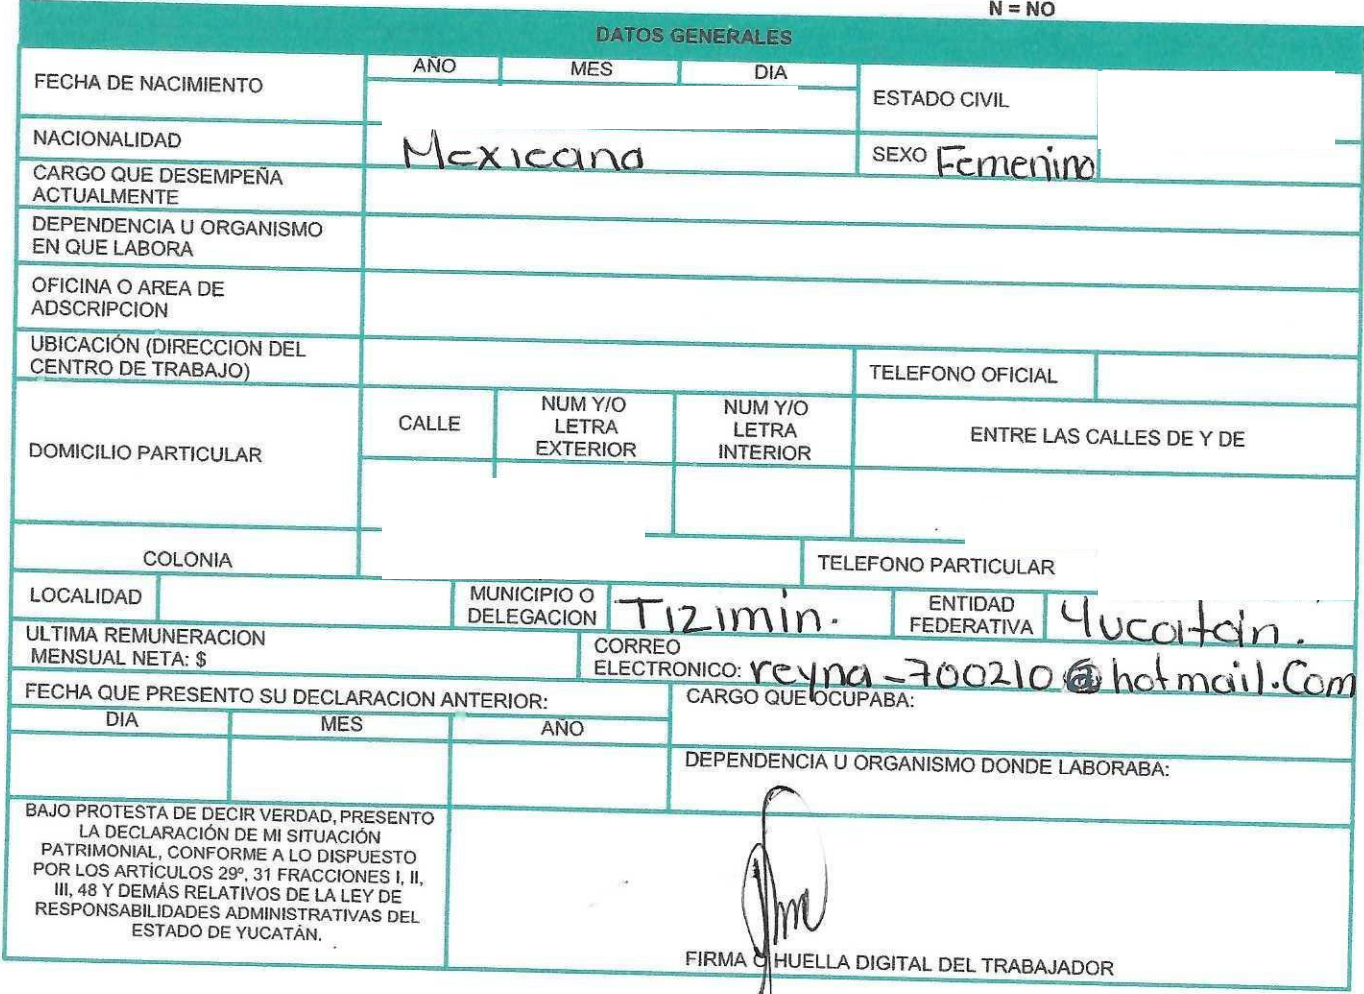 N = NO
DATOS GENERALES
FECHA DE NACIMIENTO
AÑO MES DIA
ESTADO CIVIL
NACIONALIDAD Mexicana
SEXO Femenino
CARGO QUE DESEMPEÑA
ACTUALMENTE
DEPENDENCIA U ORGANISMO
EN QUE LABORA
OFICINA O AREA DE
ADSCRIPCION
UBICACIÓN (DIRECCION DEL
CENTRO DE TRABAJO)
TELEFONO OFICIAL
DOMICILIO PARTICULAR
CALLE
NUM Y/O
LETRA
EXTERIOR
NUM Y/O
LETRA
INTERIOR
ENTRE LAS CALLES DE Y DE
COLONIA
TELEFONO PARTICULAR
LOCALIDAD
MUNICIPIO O
DELEGACION
Tizimin.
ENTIDAD
FEDERATIVA
Yucatán.
ULTIMA REMUNERACION
MENSUAL NETA: $
CORREO
ELECTRONICO: reyna_700210@hotmail.Com
FECHA QUE PRESENTO SU DECLARACION ANTERIOR:
CARGO QUE OCUPABA:
DIA MES AÑO
DEPENDENCIA U ORGANISMO DONDE LABORABA:
BAJO PROTESTA DE DECIR VERDAD, PRESENTO
LA DECLARACIÓN DE MI SITUACIÓN
PATRIMONIAL, CONFORME A LO DISPUESTO
POR LOS ARTÍCULOS 29º, 31 FRACCIONES I, II,
III, 48 Y DEMÁS RELATIVOS DE LA LEY DE
RESPONSABILIDADES ADMINISTRATIVAS DEL
ESTADO DE YUCATÁN.
FIRMA O HUELLA DIGITAL DEL TRABAJADOR